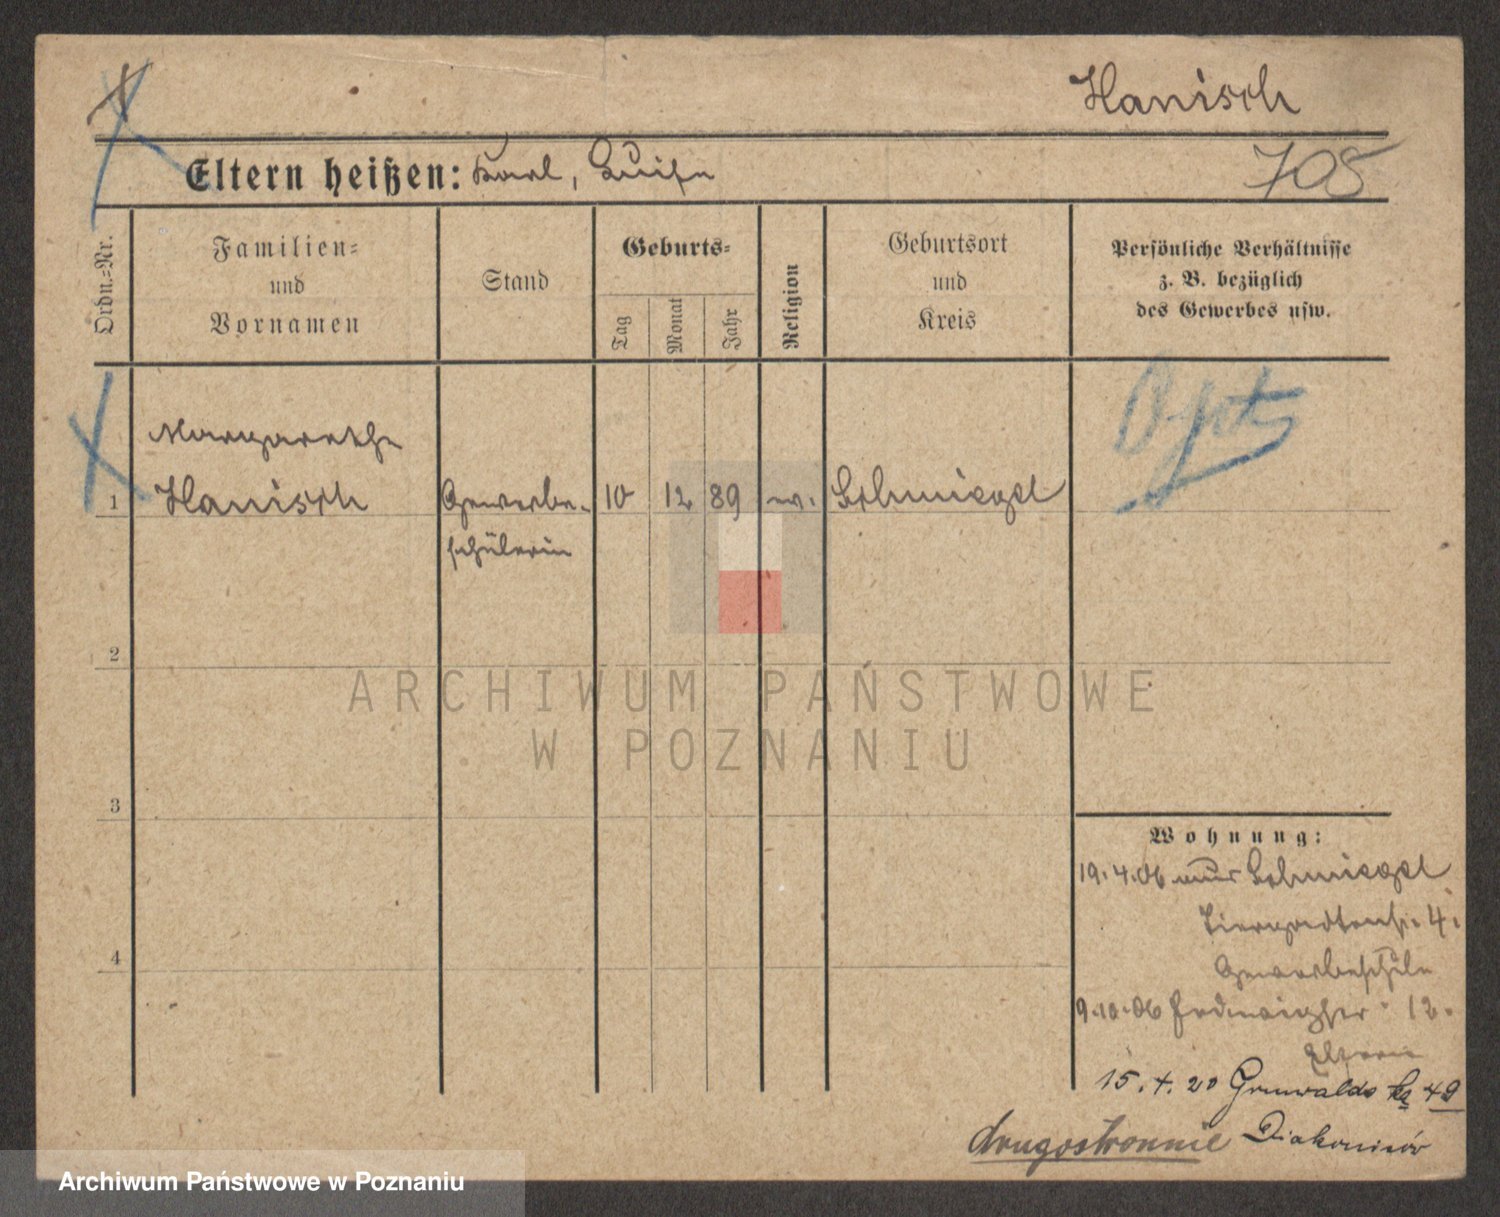 Hanisch
Eltern heißen: Karl, Luise
708
Ordn.=Nr.
Familien=
und
Vornamen
Stand
Geburts=
Tag
Monat
Jahr
Religion
Geburtsort
und
Kreis
Persönliche Verhältnisse
z. B. bezüglich
des Gewerbes usw.
Margarethe
1 Hanisch Gewerbe- 10 12 89 ev. Schmiegel
schülerin
2
3
4
Wohnung:
19.4.06 aus Schmiegel
Tiergartenstr. 4.
Gewerbeschule
9.10.06 12.
15.4.20 Grunwaldska 49
drugostronnie Diakonisów
ARCHIWUM PAŃSTWOWE
W POZNANIU
Archiwum Państwowe w Poznaniu